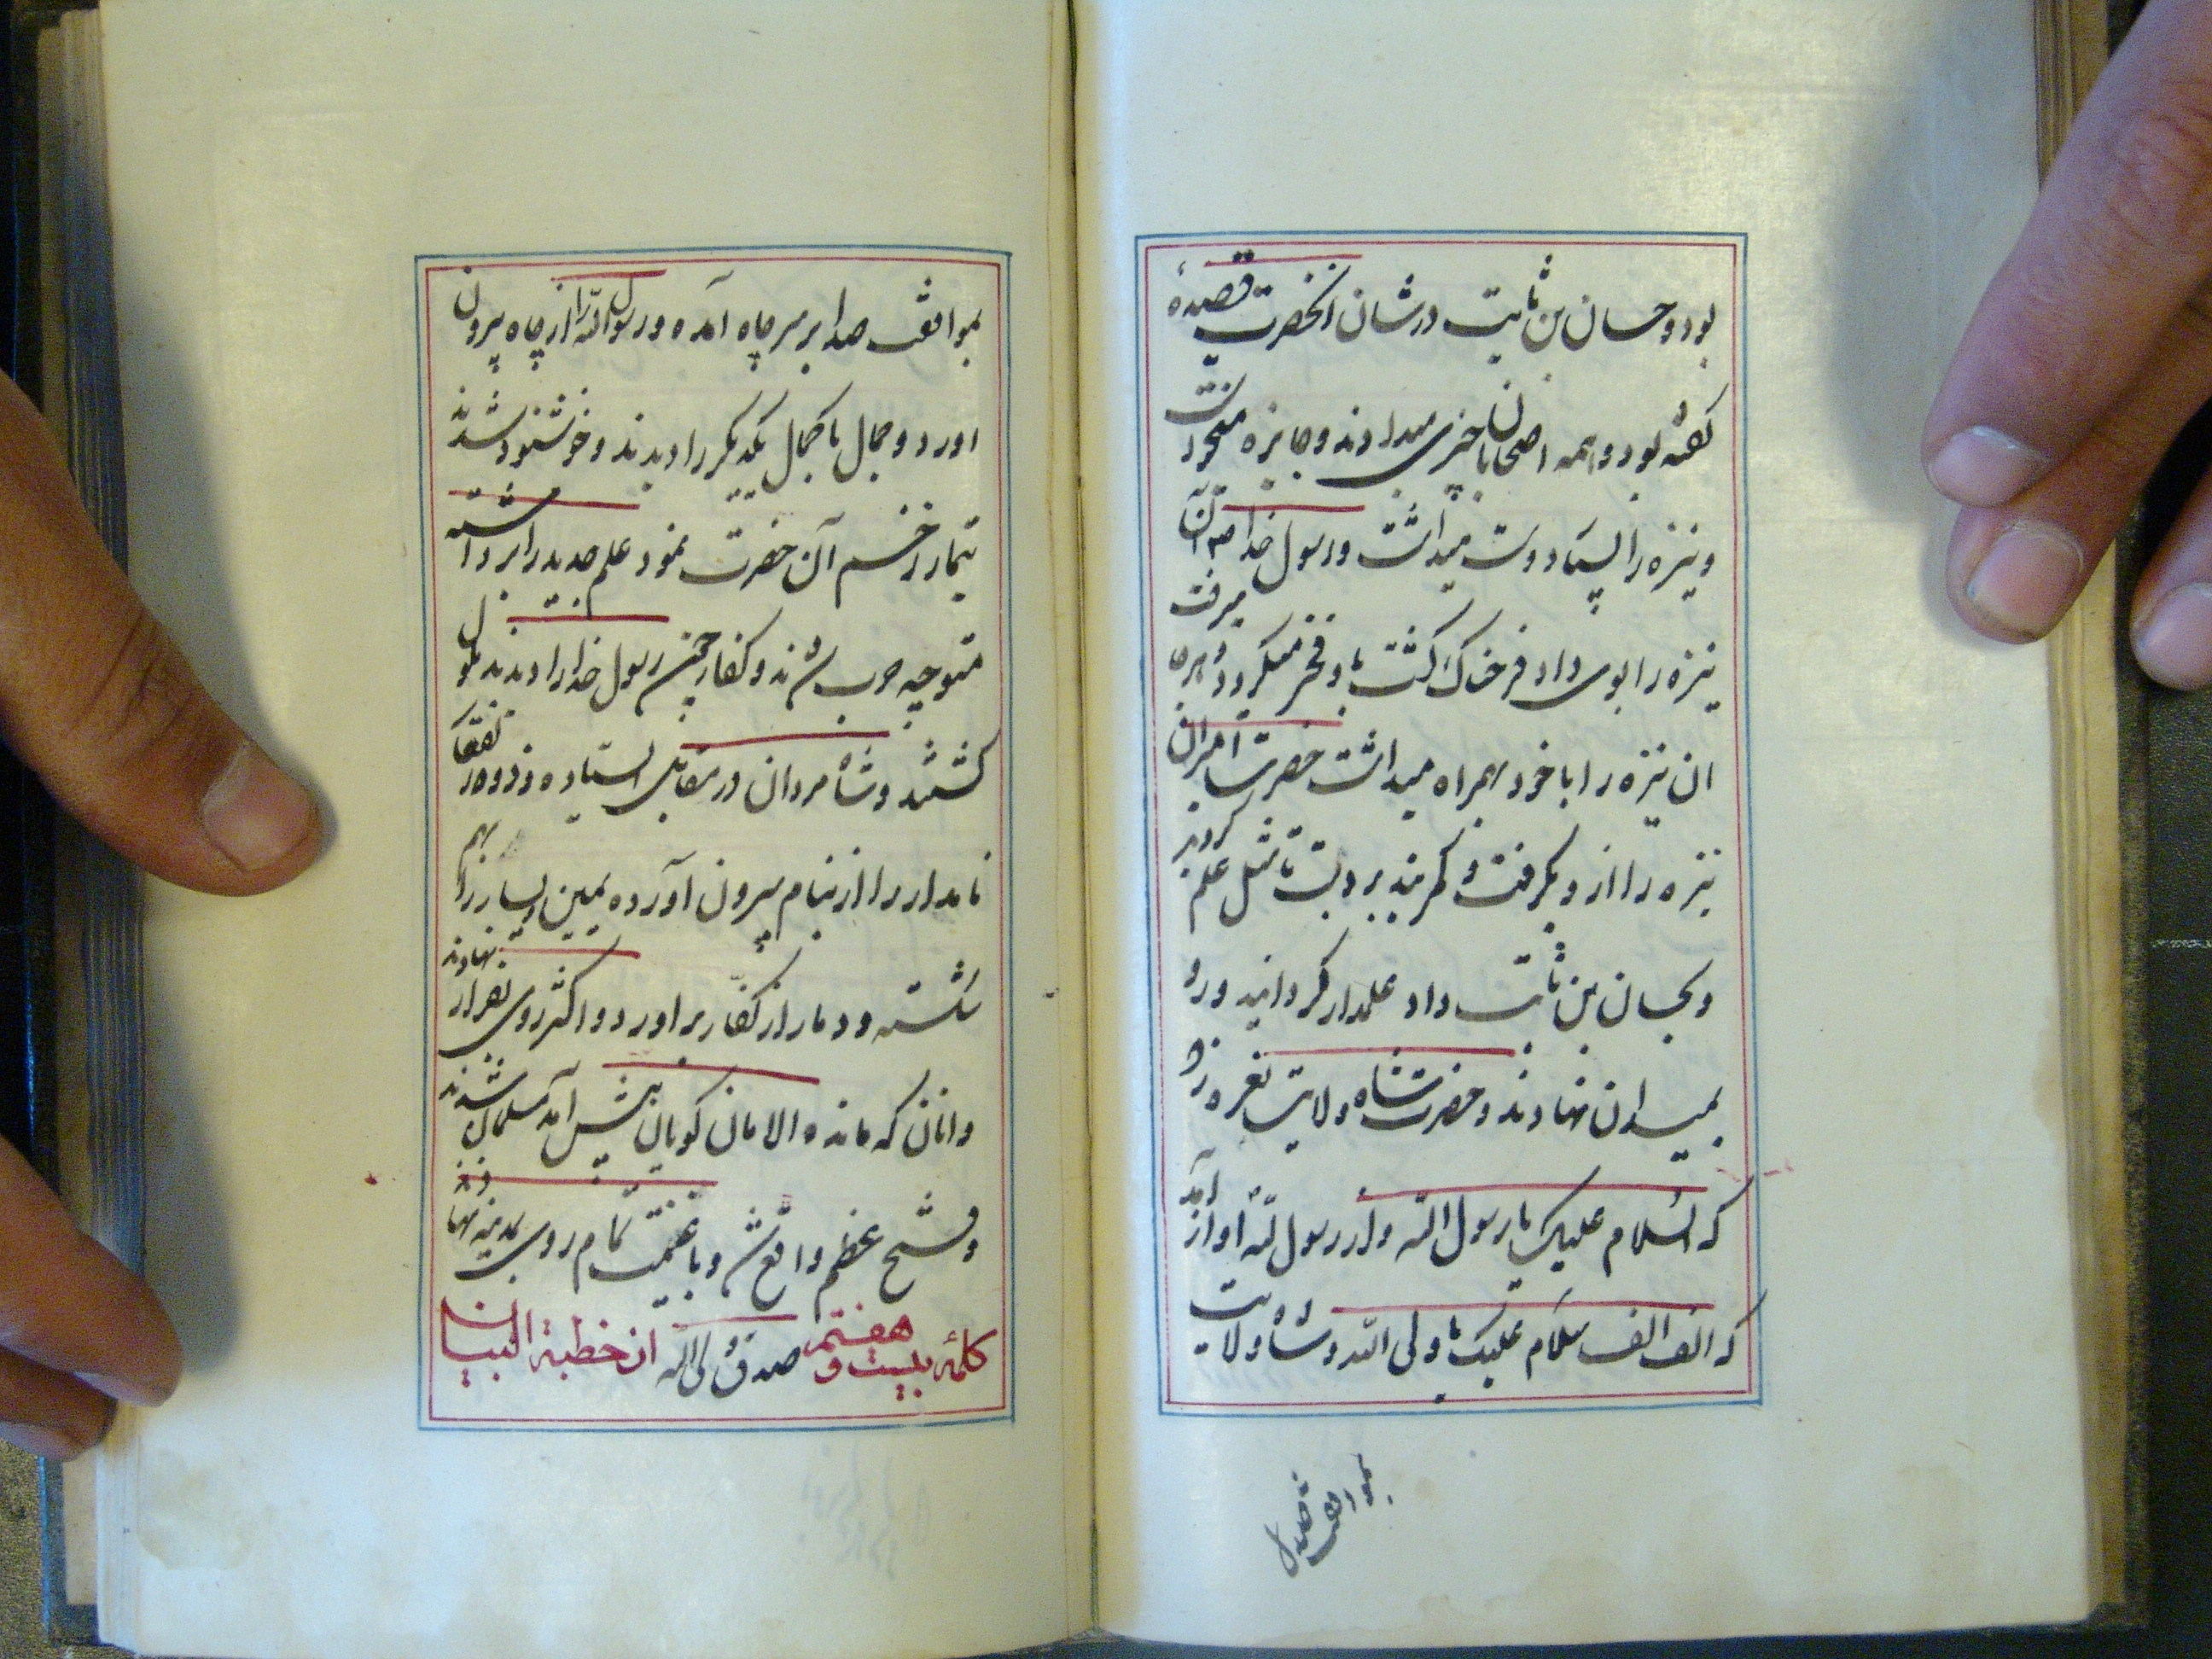 بود و حسان بن ثابت در شان انحضرت قصیدهٔ
گفته بود و همه اصحابان چیزی میدادند و جایزه میخواست
و نیزه را بسیار دوست میداشت و رسول خدا صم آن
نیزه را بوی داد فرحناک گشت باو فخر میکرد و هرجا میرفت
ان نیزه را با خود همراه میداشت حضرت امیر ان
نیزه را از و بگرفت و کمربند برو بست تا مثل علم کردند
و بحسان بن ثابت داد علمدار گردانید و رو
بمیدان نهادند و حضرت شاه ولایت نعره زد
که السلام علیک یا رسول الله و از رسول الله اواز آمد
که الف الف سلام علیک یا ولی الله و شاه ولایت
بموافقت صدا
بموافقت صدا بر سر چاه آمده و رسول الله را از چاه بیرون
اورد و جمال با کمال یکدیگر را دیدند و خوشنود شدند
تیمار زخم آن حضرت نمود علم جدید را برداشته
متوجه حرب شدند و کفار چون رسول خدا را دیدند ملول
گشتند و شاه مردان در مقابل ایستاده و ذوالفقار
نامدار را از نیام بیرون آورده یمین و یسار را بهم
شکسته و دمار از کفار بر اورد و اکثر روی بفرار نهادند
و انان که مانده الامان گویان پیش آمده مسلمان شدند
و فتح عظیم واقع شد و با غنیمت تمام روی بمدینه نهادند
کلمهٔ بیست و هفتم صدق ولی الله از خطبة البیان